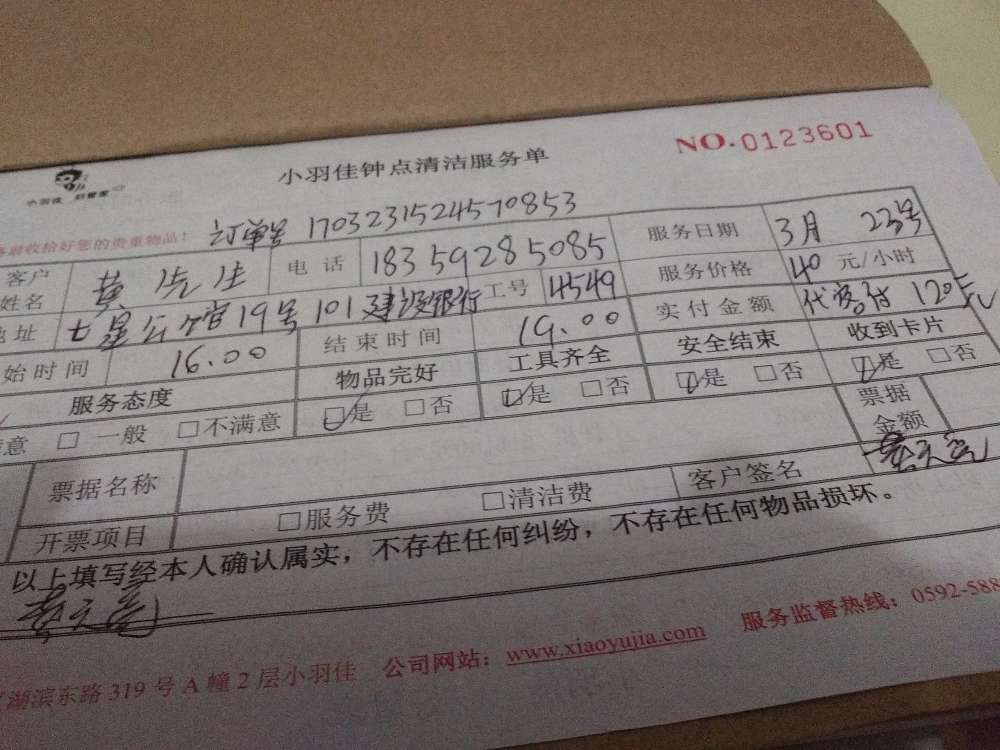 NO.0123601
小羽佳钟点清洁服务单
小羽佳 好管家
收拾好您的贵重物品！ 订单号 1703231524570853
客户姓名 黄先生 电话 18359285085 服务日期 3月 23号
地址 七星公馆19号101建设银行 工号 4549 服务价格 40 元/小时
始时间 16.00 结束时间 19.00 实付金额 代客付 120元
服务态度 物品完好 工具齐全 安全结束 收到卡片
意 □ 一般 □不满意 ☑是 □否 ☑是 □否 ☑是 □否 ☑是 □否
票据名称 票据金额
开票项目 □服务费 □清洁费 客户签名
以上填写经本人确认属实，不存在任何纠纷，不存在任何物品损坏。
湖滨东路 319 号 A 幢 2 层小羽佳 公司网站：www.xiaoyujia.com 服务监督热线：0592-588